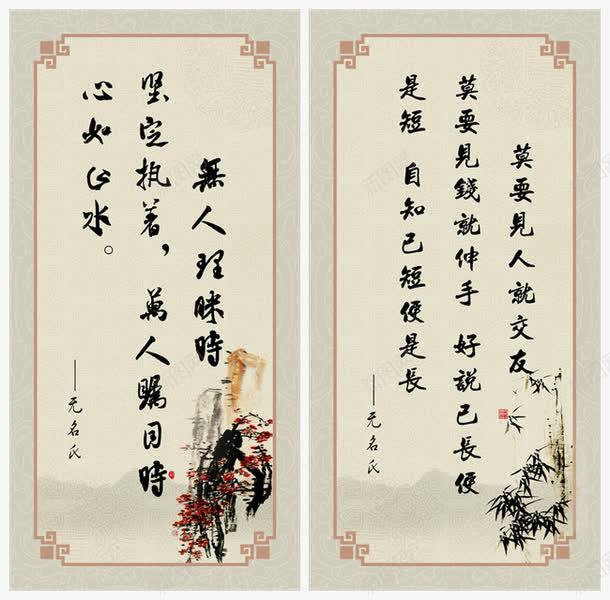 無人理睬時
坚定执着，萬人矚目時
心如止水。
——无名氏
莫要見人就交友
莫要見錢就伸手 好説己長便
是短 自知己短便是長
——无名氏